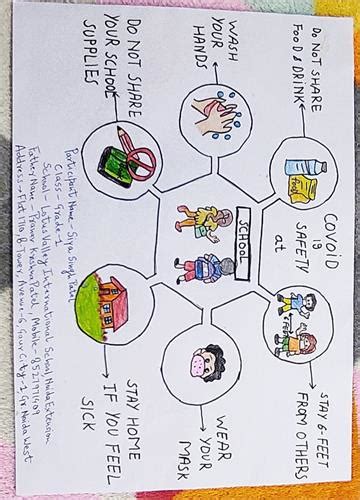 COVOID
19
SAFETY
at
SCHOOL
DO NOT SHARE
FOOD & DRINK
WASH
YOUR
HANDS
DO NOT SHARE
YOUR SCHOOL
SUPPLIES
STAY 6-FEET
FROM OTHERS
6 FEET
WEAR
YOUR
MASK
STAY HOME
IF YOU FEEL
SICK
Participant Name - Siya Singh
Class - Grade-1
School - Lotus Valley International School Noida Extension
Father Name - Patel, Mobile -
Address - Flat B Tower, Avenue-6, Gaur City-1 Gr. Noida West